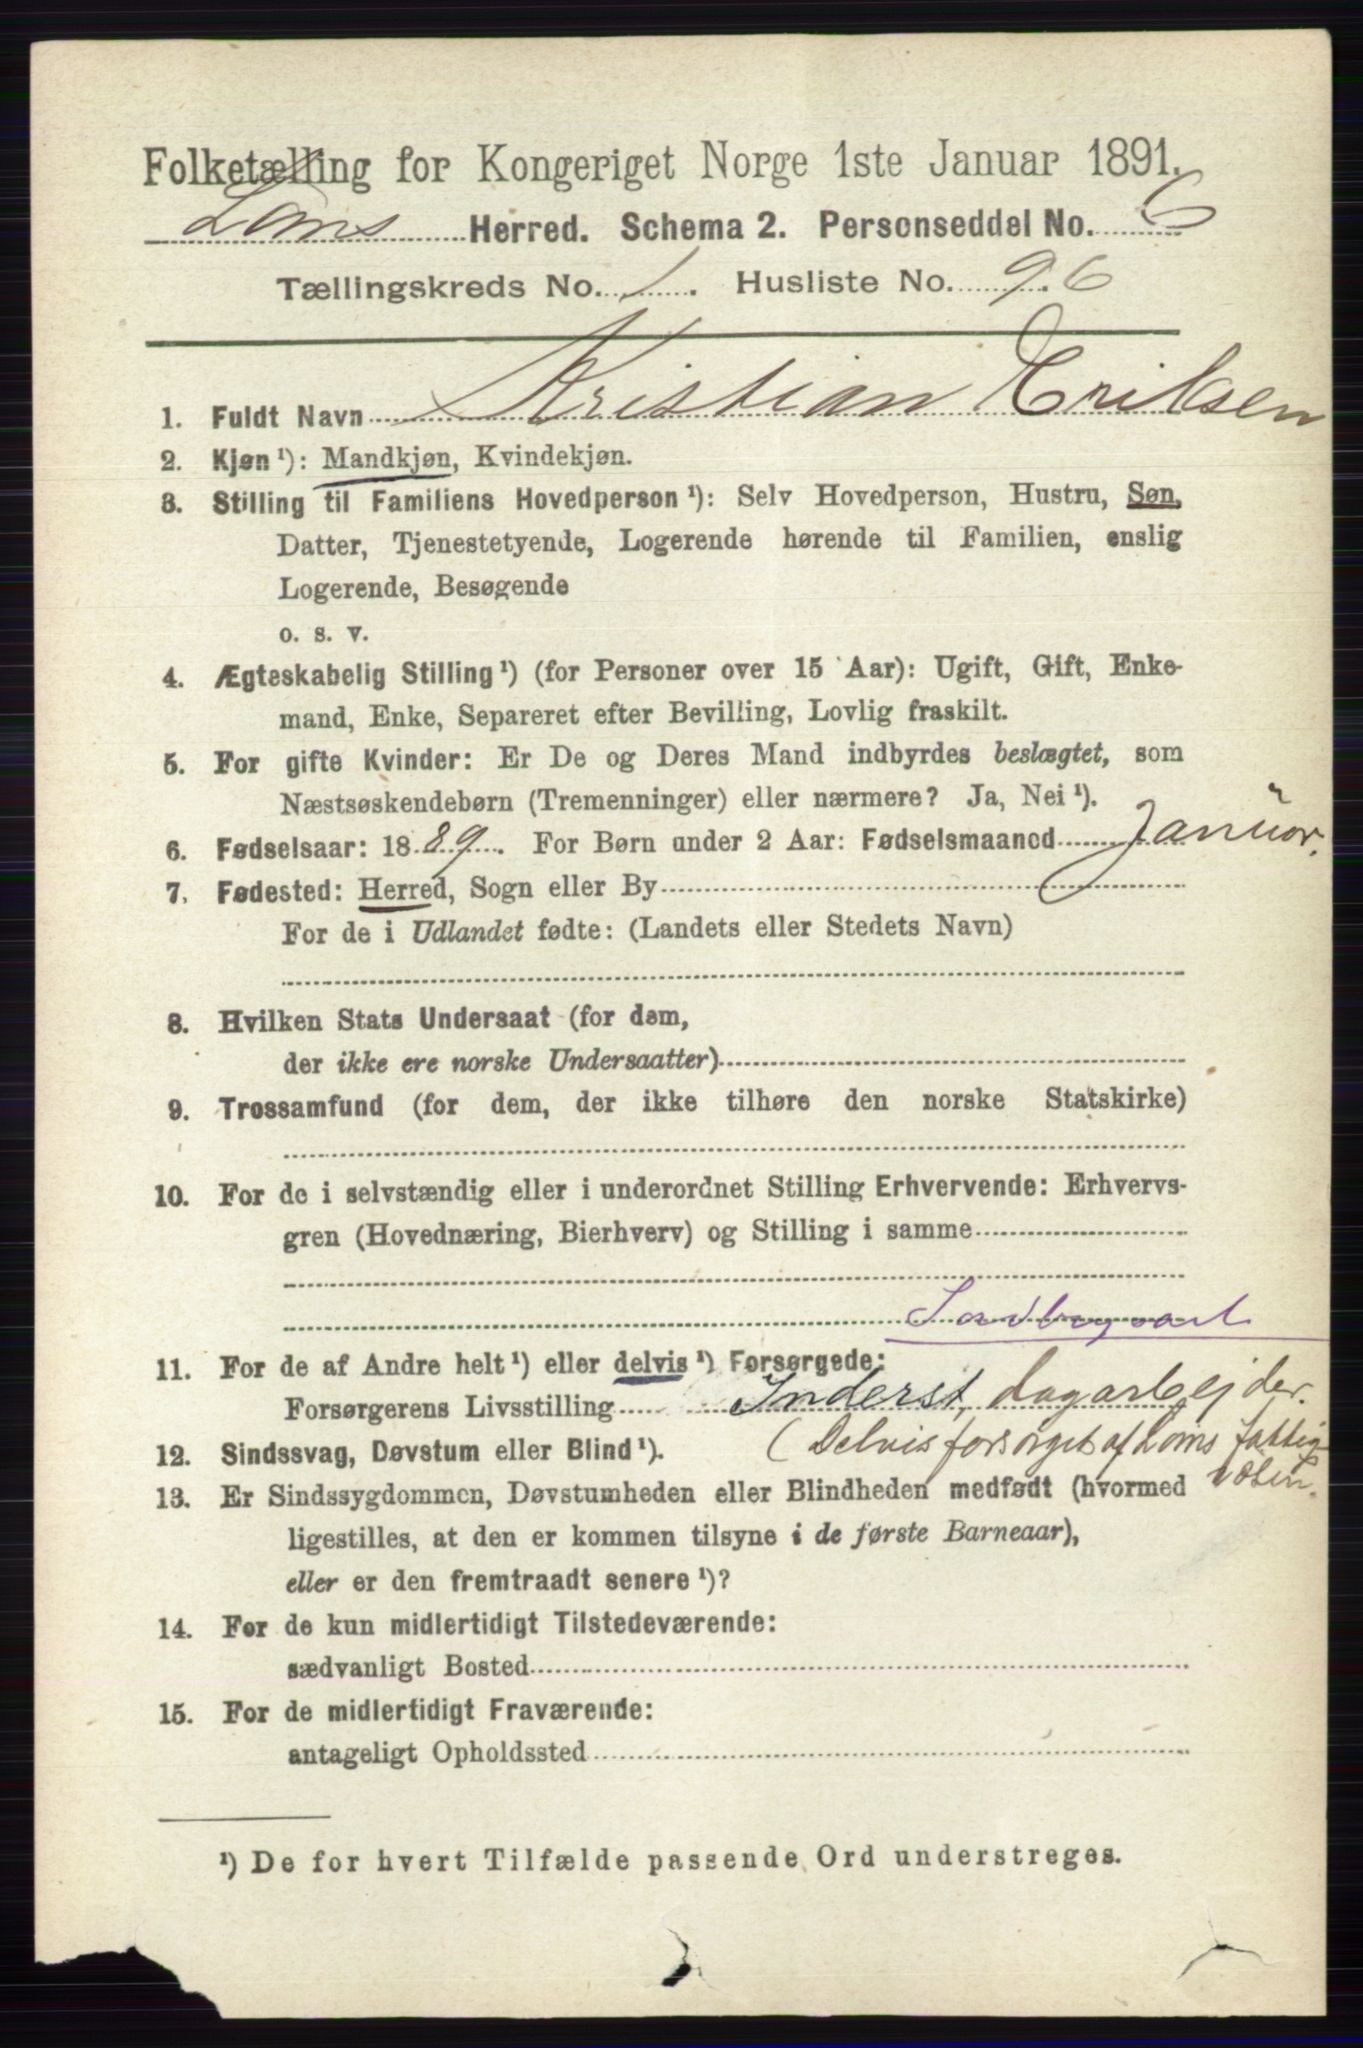 Folketælling for Kongeriget Norge 1ste Januar 1891.
Loms Herred. Schema 2. Personseddel No. 6
Tællingskreds No. 1. Husliste No. 96
1. Fuldt Navn Kristian Eriksen
2. Kjøn ¹): Mandkjøn, Kvindekjøn.
3. Stilling til Familiens Hovedperson ¹): Selv Hovedperson, Hustru, Søn,
Datter, Tjenestetyende, Logerende hørende til Familien, enslig
Logerende, Besøgende
o. s. v.
4. Ægteskabelig Stilling ¹) (for Personer over 15 Aar): Ugift, Gift, Enke-
mand, Enke, Separeret efter Bevilling, Lovlig fraskilt.
5. For gifte Kvinder: Er De og Deres Mand indbyrdes beslægtet, som
Næstsøskendebørn (Tremenninger) eller nærmere? Ja, Nei ¹).
6. Fødselsaar: 1889. For Børn under 2 Aar: Fødselsmaaned Januar.
7. Fødested: Herred, Sogn eller By
For de i Udlandet fødte: (Landets eller Stedets Navn)
8. Hvilken Stats Undersaat (for dem,
der ikke ere norske Undersaatter)
9. Trossamfund (for dem, der ikke tilhøre den norske Statskirke)
10. For de i selvstændig eller i underordnet Stilling Erhvervende: Erhvervs-
gren (Hovednæring, Bierhverv) og Stilling i samme
11. For de af Andre helt ¹) eller delvis ¹) Forsørgede:
Forsørgerens Livsstilling Inderst, Dagarbejder.
(Delvis forsørget af Loms Fattig-
væsen.
12. Sindssvag, Døvstum eller Blind ¹).
13. Er Sindssygdommen, Døvstumheden eller Blindheden medfødt (hvormed
ligestilles, at den er kommen tilsyne i de første Barneaar),
eller er den fremtraadt senere ¹)?
14. For de kun midlertidigt Tilstedeværende:
sædvanligt Bosted
15. For de midlertidigt Fraværende:
antageligt Opholdssted
¹) De for hvert Tilfælde passende Ord understreges.